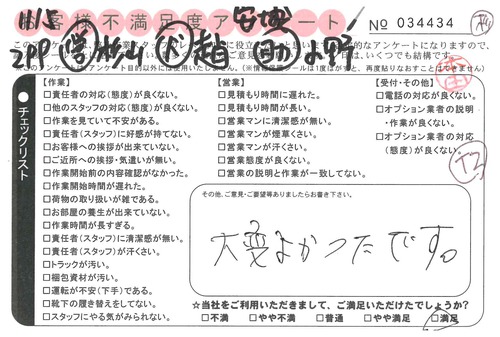 11/5
安城
お客様不満足度アンケート
No 034434
チェックリスト
【作業】
□責任者の対応(態度)が良くない。
□他のスタッフの対応(態度)が良くない。
□作業を見ていて不安がある。
□責任者(スタッフ)に好感が持てない。
□お客様への挨拶が出来ていない。
□ご近所への挨拶・気遣いが無い。
□作業開始前の内容確認がなかった。
□作業開始時間が遅れた。
□荷物の取り扱いが雑である。
□お部屋の養生が出来ていない。
□作業時間が長すぎる。
□責任者(スタッフ)に清潔感が無い。
□責任者(スタッフ)が汗くさい。
□トラックが汚い。
□梱包資材が汚い。
□運転が不安(下手)である。
□靴下の履き替えをしてない。
□スタッフにやる気がみられない。
【営業】
□見積もり時間に遅れた。
□見積もり時間が長い。
□営業マンに清潔感が無い。
□営業マンが煙草くさい。
□営業マンが汗くさい。
□営業態度が良くない。
□営業の説明と作業が一致してない。
【受付・その他】
□電話の対応が良くない。
□オプション業者の説明
・作業が良くない。
□オプション業者の対応
(態度)が良くない。
その他、ご意見・ご要望等ありましたらお書き下さい。
大変よかったです。
☆当社をご利用いただきまして、ご満足いただけたでしょうか?
□不満 □やや不満 □普通 □やや満足 □満足